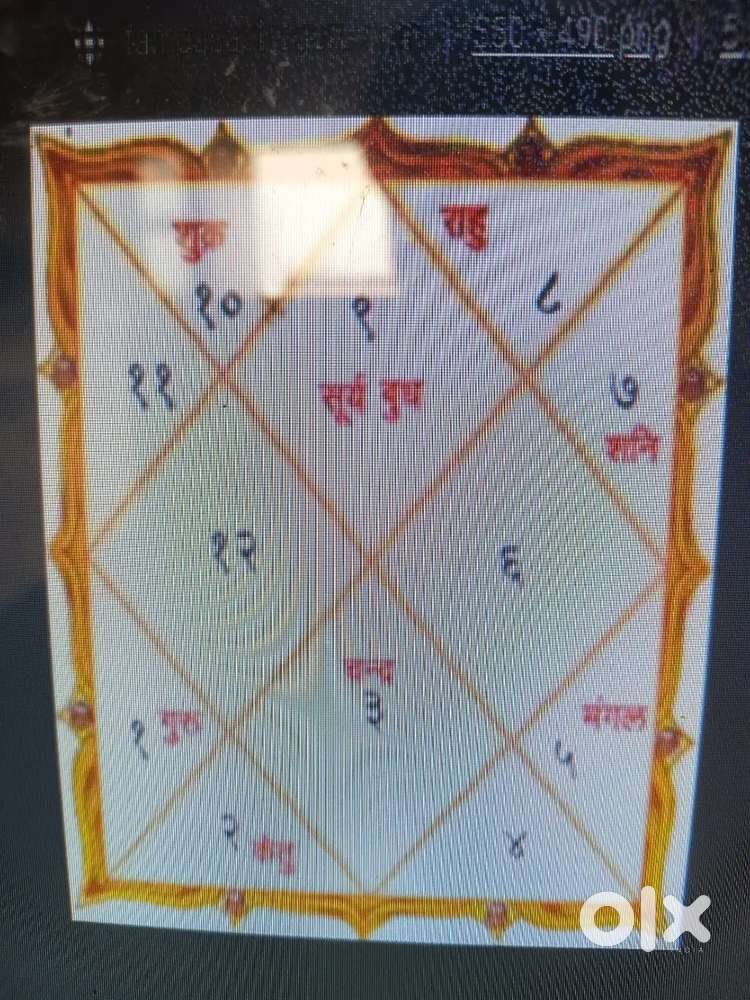 550 × 490 png
शुक्र
राहु
१०
९
८
११
सूर्य बुध
७
शनि
१२
६
चन्द्र
३
गुरु
१
मंगल
५
२
केतु
४
olx